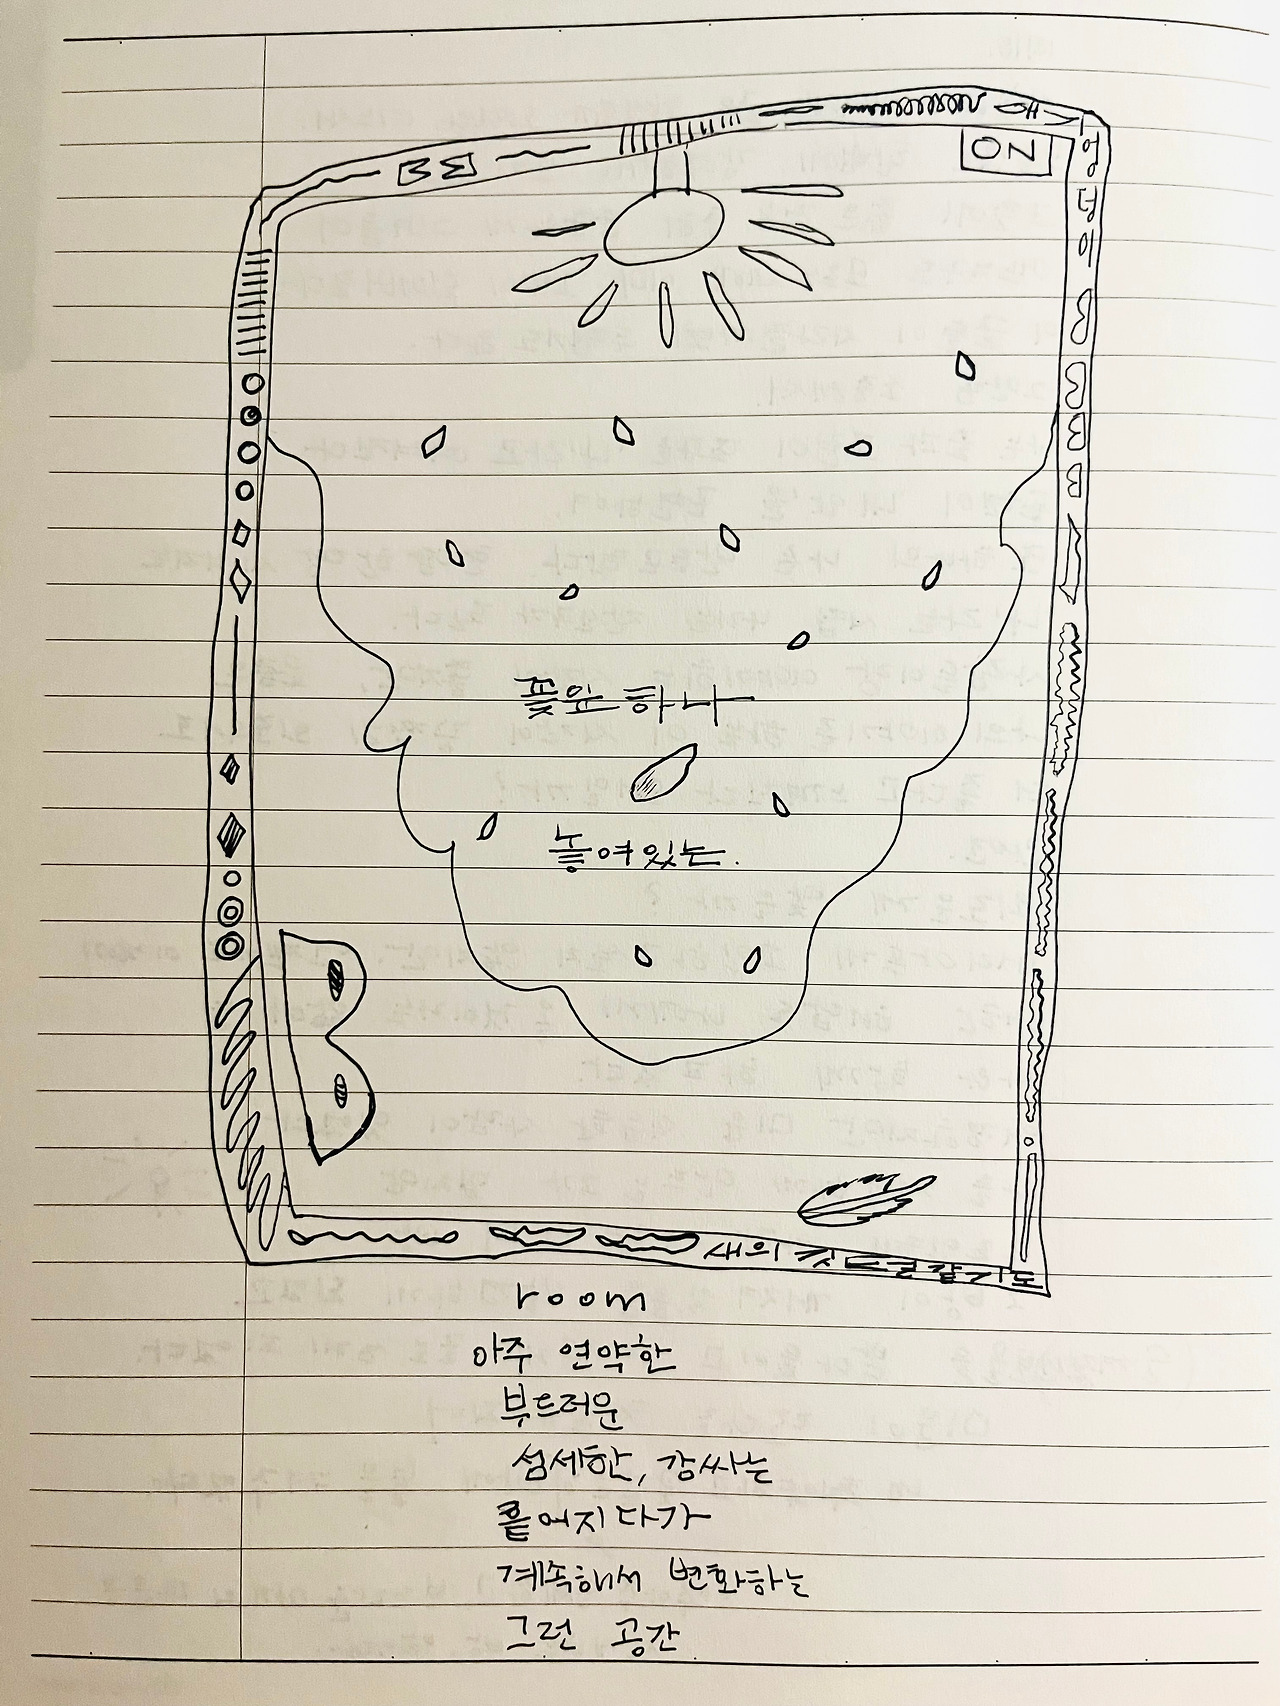 ON
꽃잎 하나
놓여있는.
새의 같기도
room
아주 연약한
부드러운
섬세한, 감싸는
흩어지다가
계속해서 변화하는
그런 공간